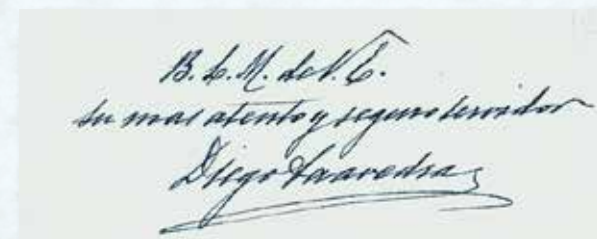 B. L. M. de V. E.
su mas atento y seguro servidor
Diego Saavedra